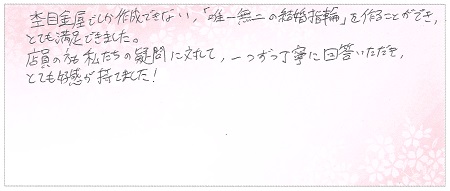 杢目金屋でしか作成できない、「唯一無二の結婚指輪」を作ることができ、
とても満足できました。
店員の方も私たちの疑問に対して、一つずつ丁寧に回答いただき、
とても好感が持てました！